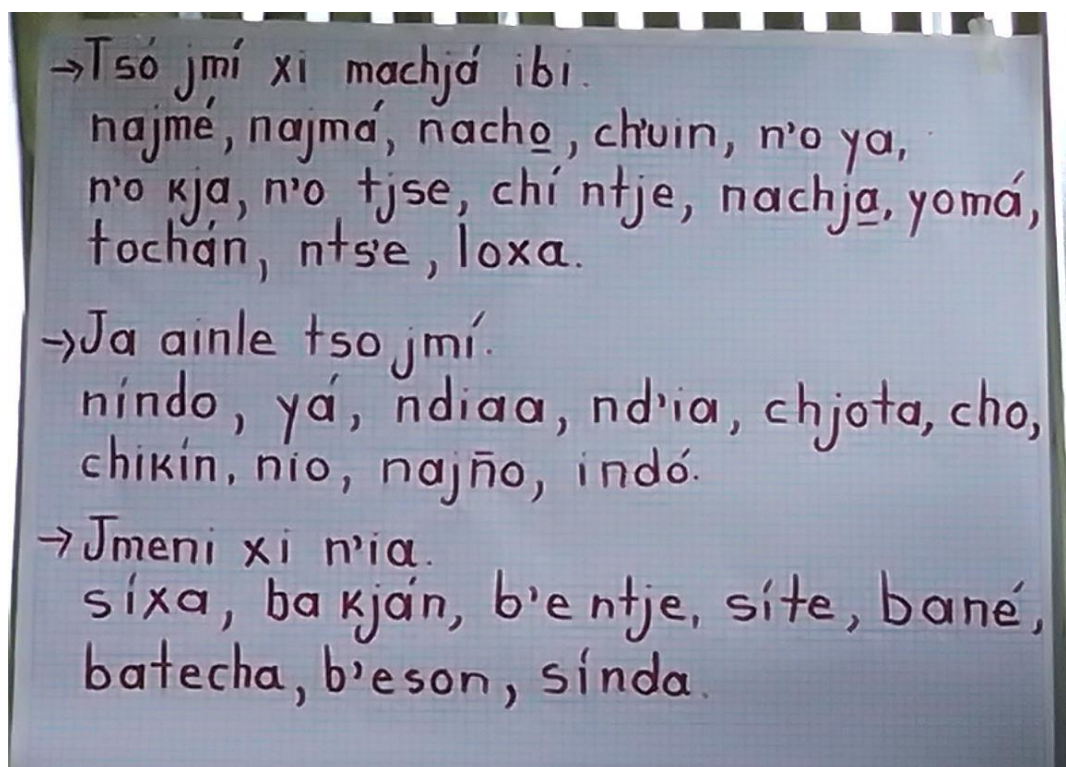 →Tsó jmí xi machjá ibi.
najmé, najmá, nacho̱, ch'uin, n'o ya,
n'o kja, n'o tjse, chí ntje, nachja̱, yomá,
tochán, nts'e, loxa.
→Ja ainle tso jmí.
níndo, yá, ndiaa, nd'ia, chjota, cho,
chikín, nio, najño, indó.
→Jmeni xi n'ia.
síxa, ba kján, b'e ntje, síte, bané,
batecha, b'eson, sínda.